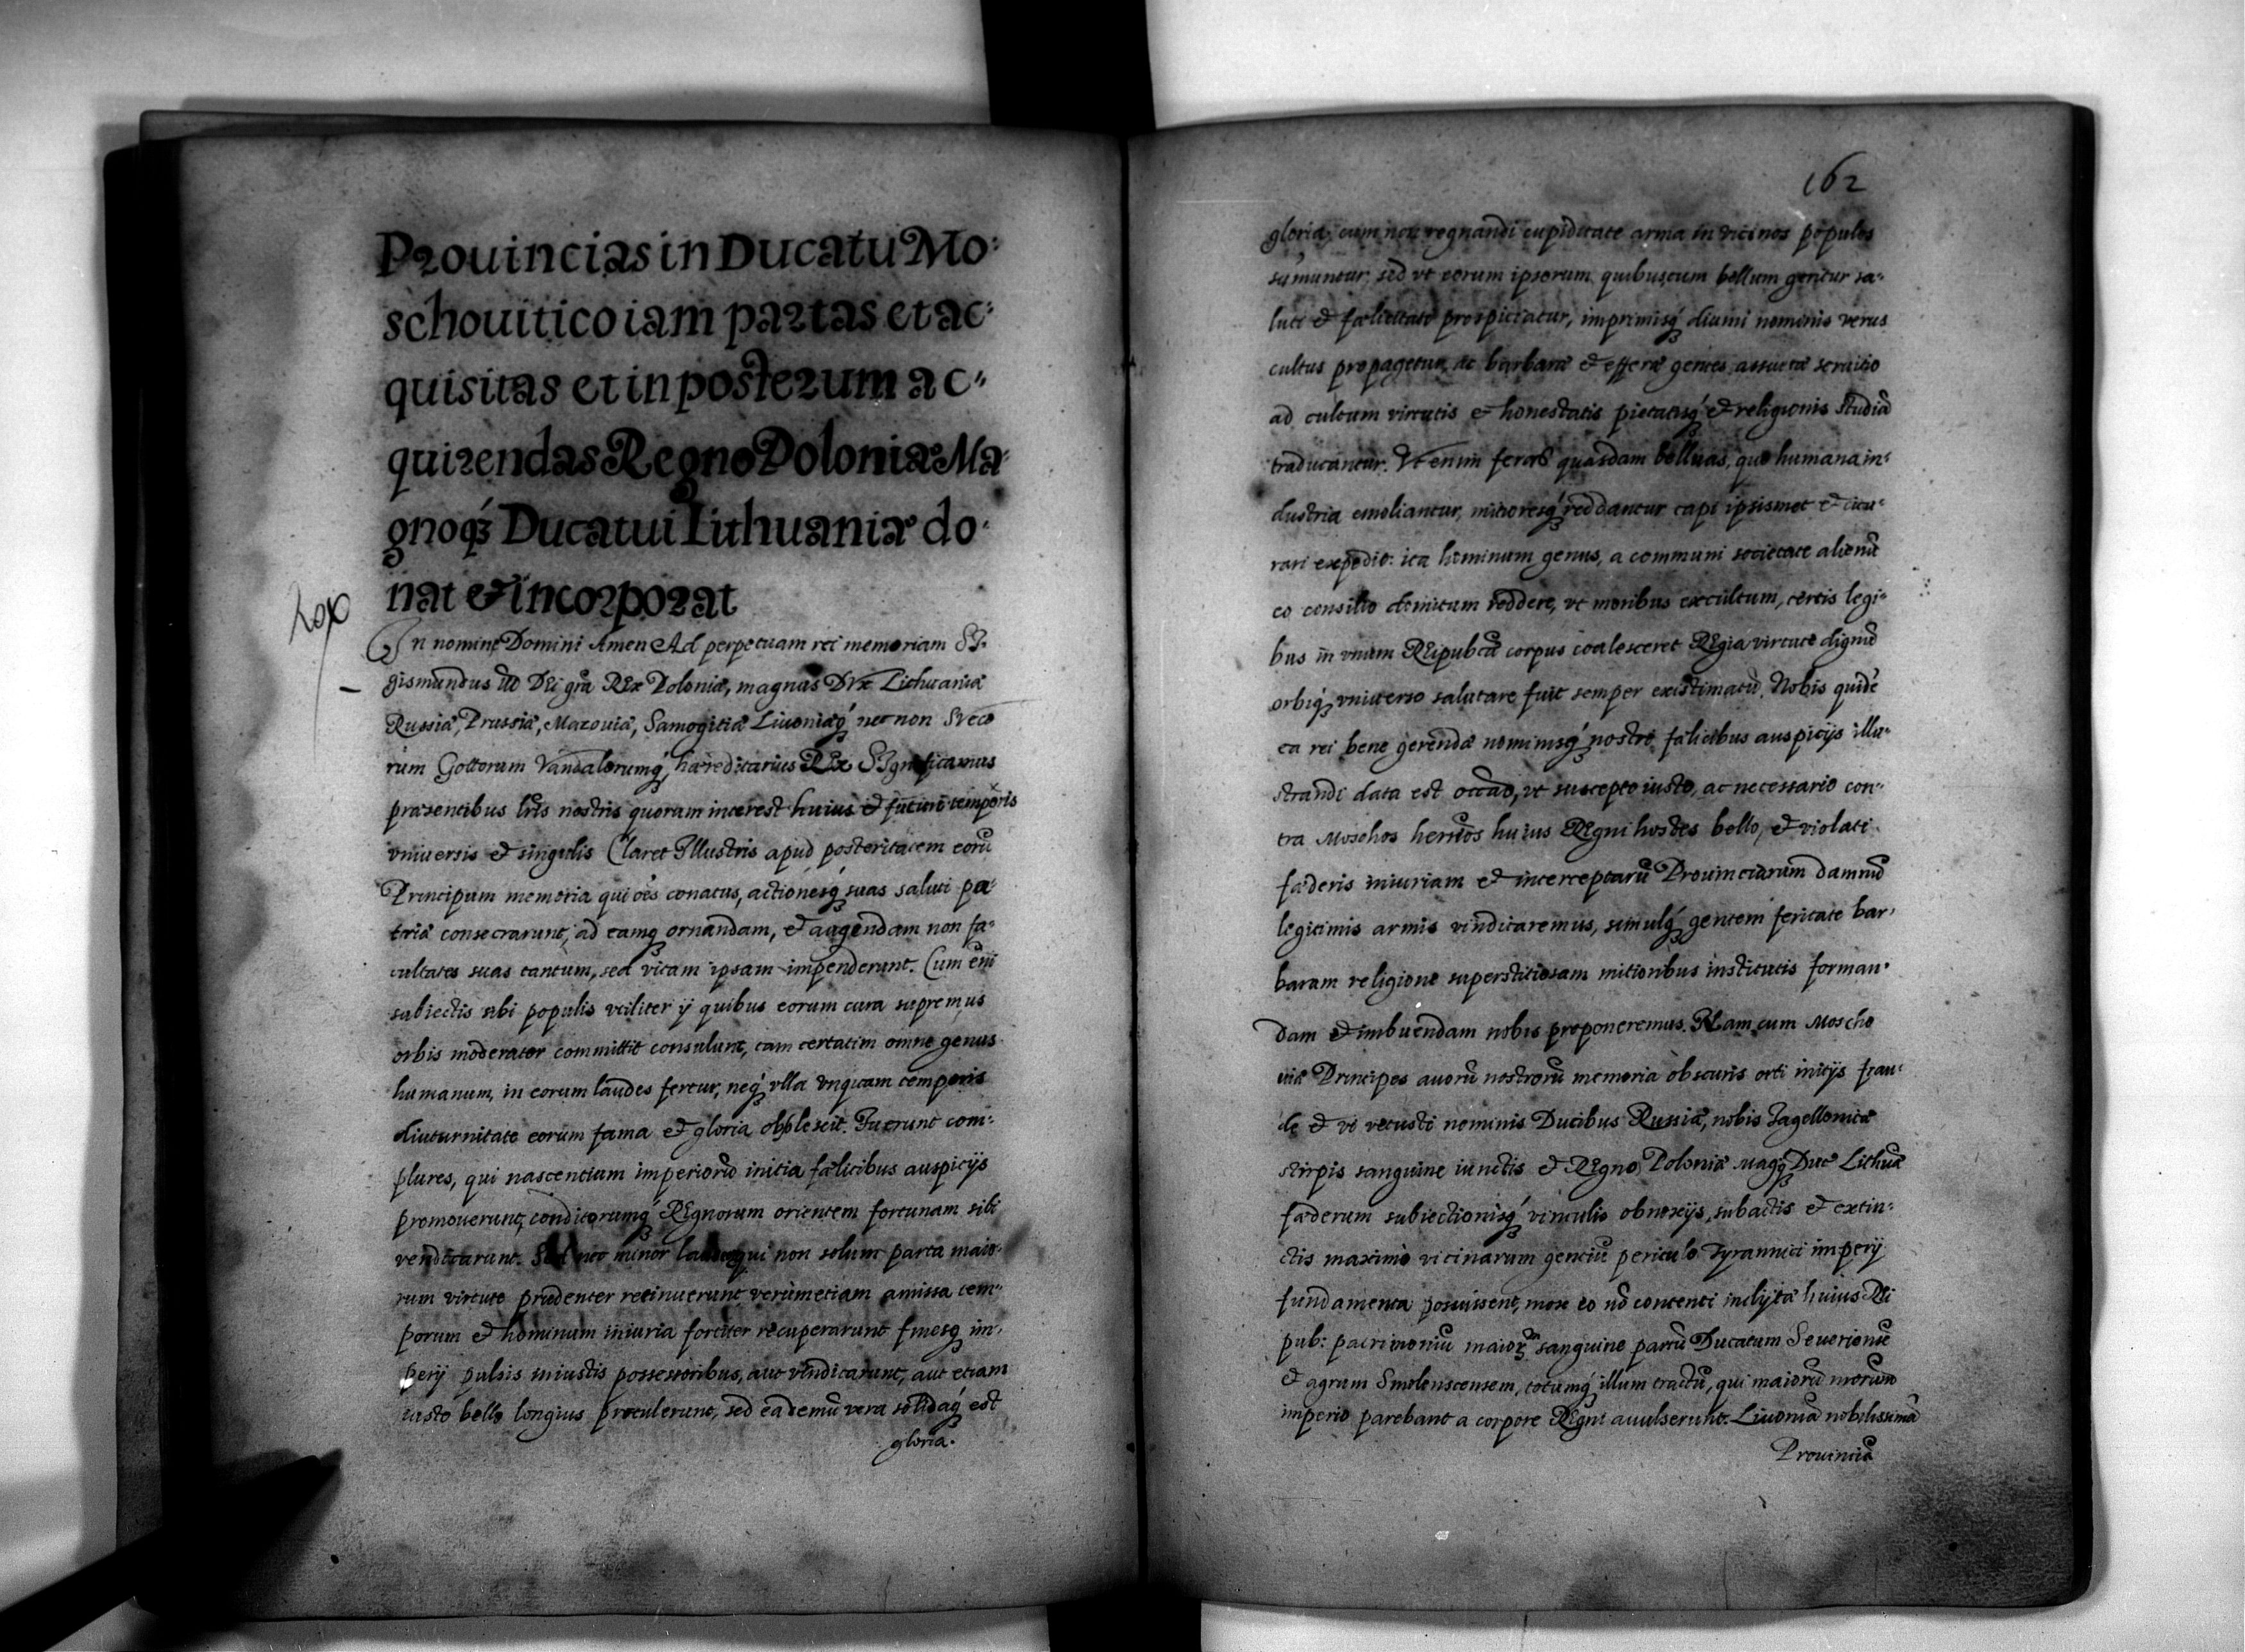 Prouincias in Ducatu Mo-
schouitico iam partas et ac-
quisitas et in posterum ac-
quirendas Regno Poloniæ Ma-
gnoq́ꝫ Ducatui Lithuaniæ do-
nat & incorporat
In nomine Domini Amen Ad perpetuam rei memoriam SI-
gismundus Dei gra͂ REx Poloniæ, magnus DVx Lithuaniæ
Russiæ, Prussiæ, Mazouiæ, Samogitiæ Liuoniæq́ꝫ necnon Sveco
rum Gottorum Vandalorumq́ꝫ, hæreditarius REx SIgnificamus
præsentibus lr̃is nostris quorum interest huius & futuri temporis
vniuersis & singulis Claret Illustris apud posteritatem eorũ
Principum memoria qui oẽs conatus, actionesq́ꝫ suas saluti pa-
triæ consecrarunt, ad eamqꝫ ornandam, & augendam non fa-
cultates suas tantùm, sed vitam ipsam impenderunt. Cum eñi
subiectis sibi populis vtiliter ij quibus eorum cura supremus
orbis moderator committit consulunt, tam certatim omne genus
humanum, in eorum laudes fertur, neq́ꝫ vlla vnquam temporis
diuturnitate eorum fama & gloria obsolescit. Fuerunt com-
plures, qui nascentium imperiorũ initia fælicibus auspicijs
promouerunt, conditorumq́ꝫ REgnorum orientem fortunam sibi
vendicarunt. Sed nec minor laus qui non solum parta maio-
rum virtute prudenter retinuerunt, verùmetiam amissa tem-
porum & hominum iniuria fortiter recuperarunt finesqꝫ im-
perij pulsis iniustis possessoribus, aut vindicarunt, aut etiam
iusto bello longius protulerunt, sed ea demũ vera solidaq́ꝫ est
gloria.
162
gloria, cum non regnandi cupiditate arma in vicinos populos
sumuntur sed vt eorum ipsorum quibuscum bellum geritur sa-
luti & fælicitati prospiciatur, imprimisq́ꝫ diuini nominis verus
cultus propagetur, ac barbaræ & efferæ gentes assuetæ seruitio
ad cultum virtutis & honestatis pietatisq́ꝫ & religionis studiã
traducantur. Vt enim feras quasdam belluas, quo humana in-
dustria emoliantur, mitioresq́ꝫ reddantur capi ipsismet & cicu-
rari expedit: ita hominum genus, a communi societate alienũ
eo consilio domitum reddere, vt moribus excultum, certis legi-
bus in vnum REipubcæ corpus coalesceret REgia virtute dignũ
orbiq́ꝫ vniuerso salutare fuit semper existimatũ. Nobis quidẽ
ea rei bene gerendæ nominisq́ꝫ nostri fælicibus auspicijs illu-
strandi data est occão, vt suscepto iusto, ac necessario con-
tra Moschos huius REgni hostes bello, & violati
fæderis iniuriam & interceptarũ Prouinciarum damnũ
legitimis armis vindicaremus, simulq́ꝫ gentem feritate bar-
baram religione superstitiosam mitioribus institutis forman-
dam & imbuendam nobis proponeremus. NAm cum Moscho
uiæ Principes auorũ nostrorũ memoria obscuris orti initijs frau-
de & vi vetusti nominis Ducibus Russiæ, nobis Jagellonicæ
stirpis sanguine iunctis & REgno Poloniæ Magqꝫ Duc Lithuæ
fæderum subiectionisq́ꝫ vinculis obnoxijs, subactis & extin-
ctis maximo vicinarum gentiũ periculo Tyrannici imperij
fundamenta posuissent, mox eo nõ contenti inclytæ huius REi
pub: patrimoniũ maiorꝫ sanguine partũ Ducatum Seueriensẽ
& agrum Smolenscensem, totumq́ꝫ illum tractũ, qui maiorũ nrorum
imperio parebant a corpore REgni auulserunt. Liuoniã nobilissimã
Prouinciã